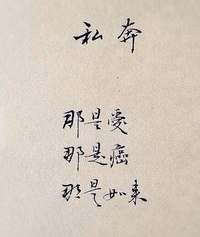 私奔
那是爱
那是癌
那是如来